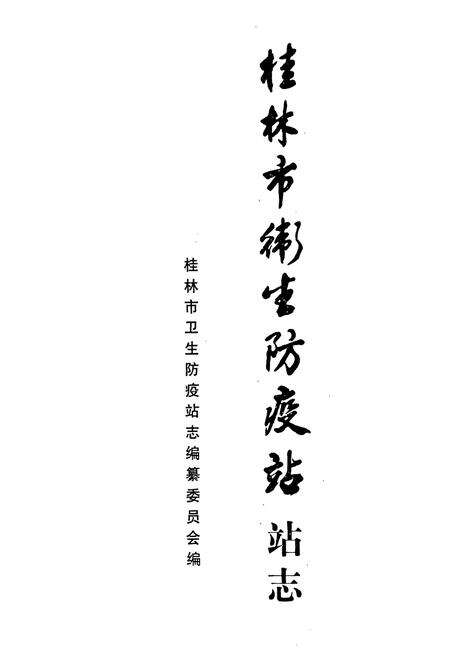 桂林市衛生防疫站站志
桂林市卫生防疫站志编纂委员会编